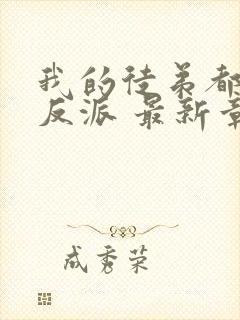 我的徒弟都
反派 最新章
成秀荣